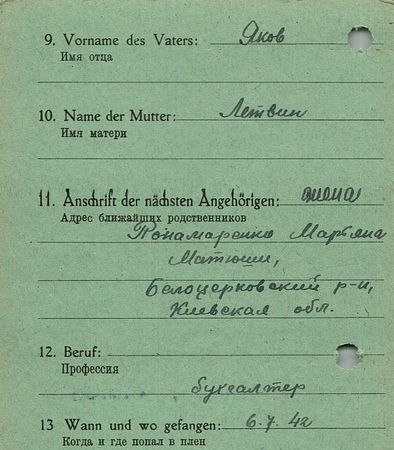 9. Vorname des Vaters: Яков
Имя отца
10. Name der Mutter: Летвин
Имя матери
11. Anschrift der nächsten Angehörigen: жена
Адрес ближайших родственников
Понамаренко Мартяна
Матюши,
Белоцерковский р-н,
Киевская обл.
12. Beruf:
Профессия
бухгалтер
13 Wann und wo gefangen: 6.7.42
Когда и где попал в плен